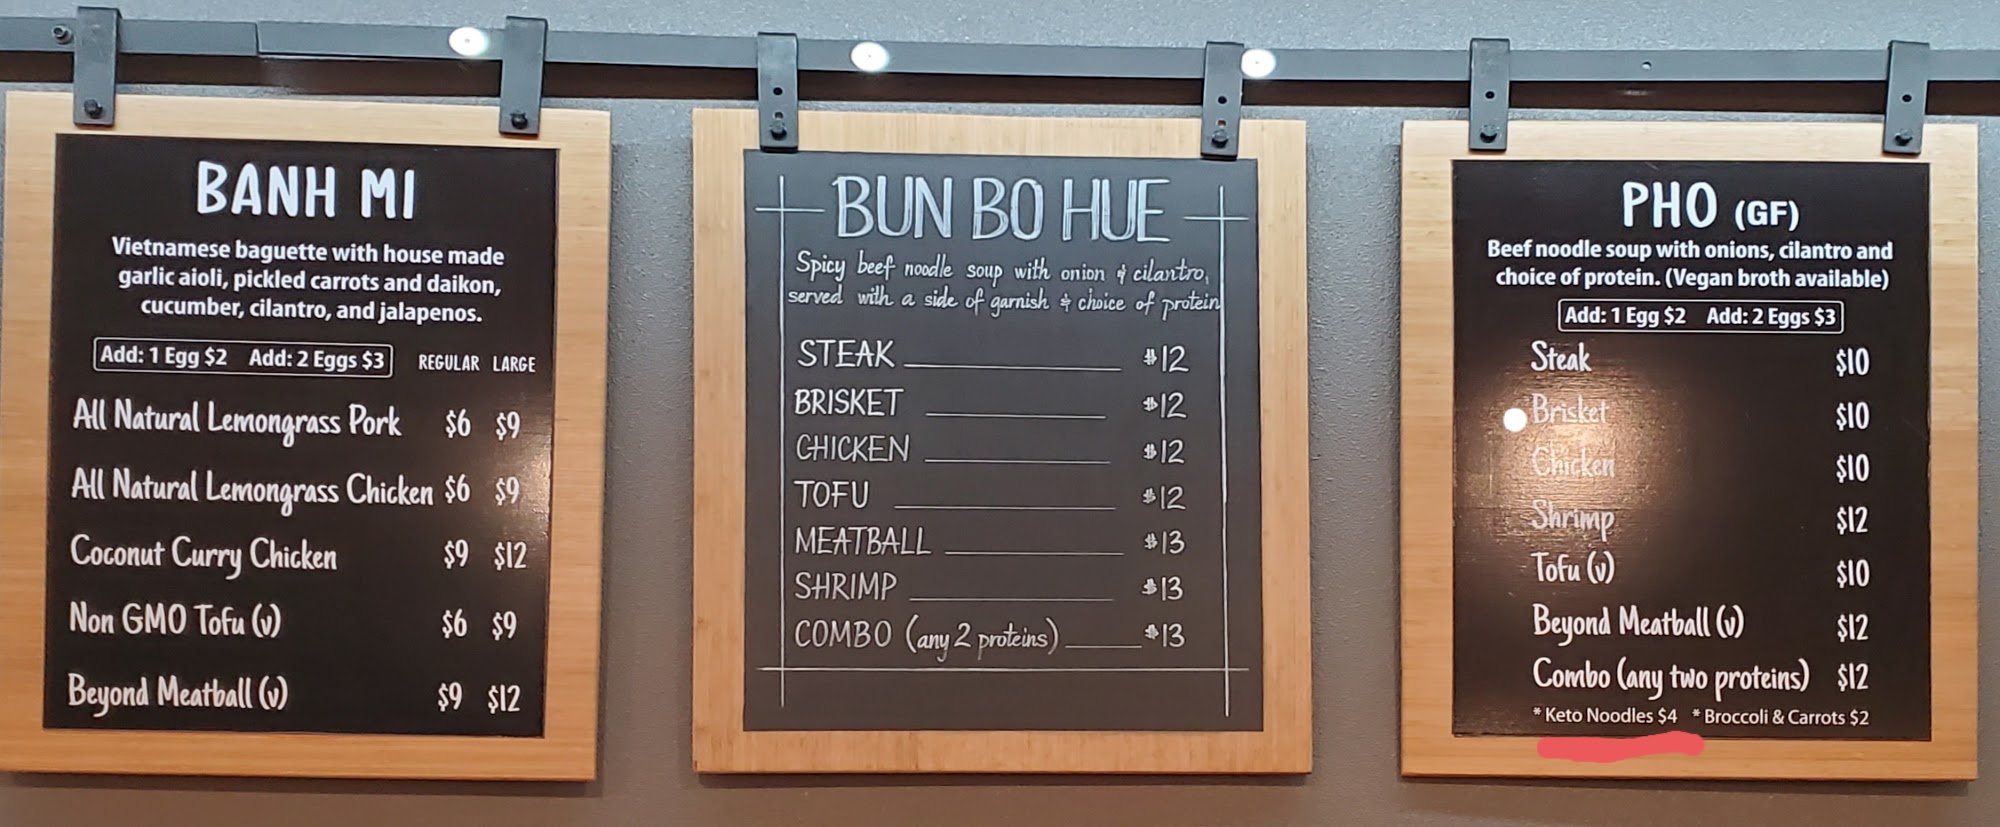 BANH MI
Vietnamese baguette with house made
garlic aioli, pickled carrots and daikon,
cucumber, cilantro, and jalapenos.
Add: 1 Egg $2 Add: 2 Eggs $3 REGULAR LARGE
All Natural Lemongrass Pork $6 $9
All Natural Lemongrass Chicken $6 $9
Coconut Curry Chicken $9 $12
Non GMO Tofu (v) $6 $9
Beyond Meatball (v) $9 $12
BUN BO HUE
Spicy beef noodle soup with onion & cilantro,
served with a side of garnish & choice of protein
STEAK $12
BRISKET $12
CHICKEN $12
TOFU $12
MEATBALL $13
SHRIMP $13
COMBO (any 2 proteins) $13
PHO (GF)
Beef noodle soup with onions, cilantro and
choice of protein. (Vegan broth available)
Add: 1 Egg $2 Add: 2 Eggs $3
Steak $10
Brisket $10
Chicken $10
Shrimp $12
Tofu (v) $10
Beyond Meatball (v) $12
Combo (any two proteins) $12
* Keto Noodles $4 * Broccoli & Carrots $2